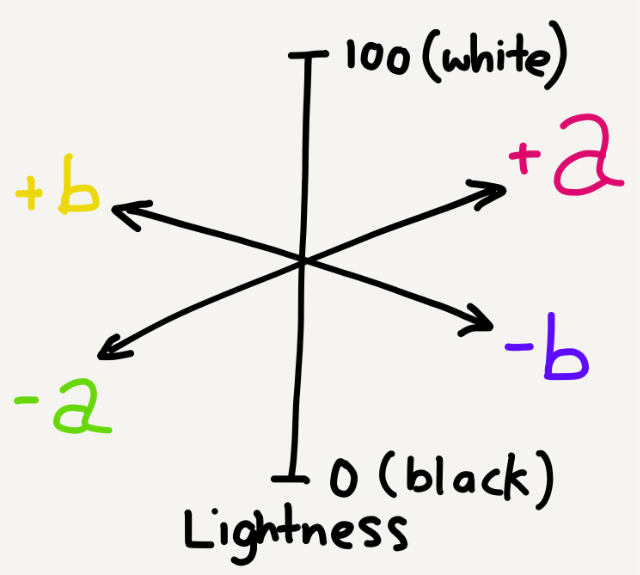 100 (white)
+a
+b
-b
-a
0 (black)
Lightness